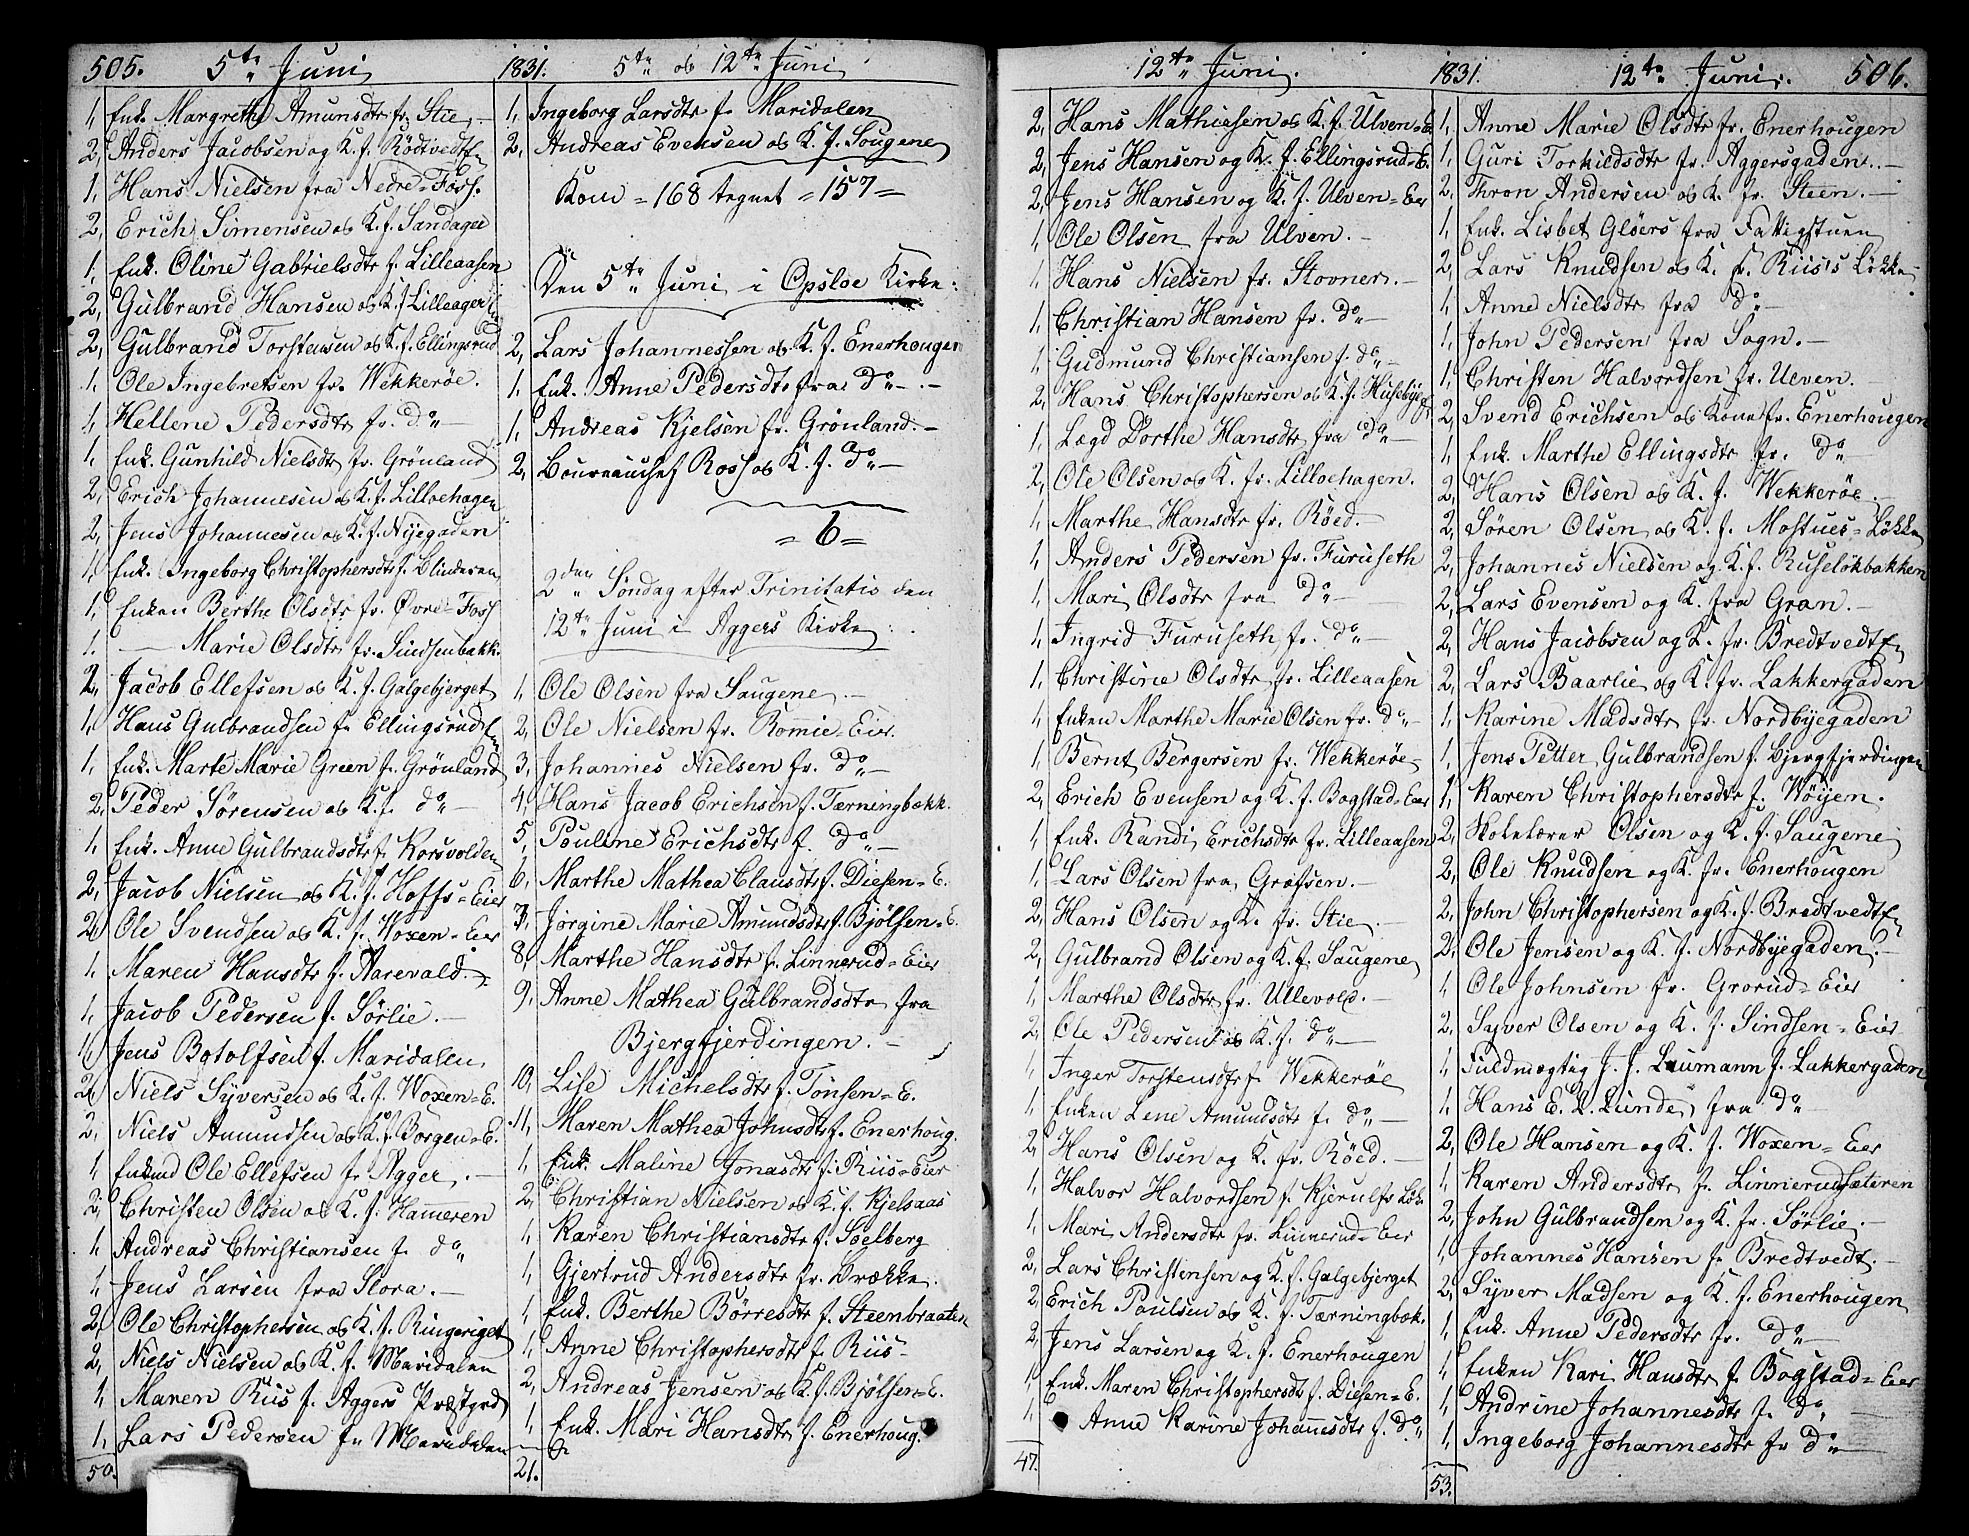 505. 5te Juni 1831. 5te og 12te Juni
1, Enk. Margrethe Amunsdtr fr. Stie
2, Anders Jacobsen og K. f. Rödtvedt E.
1, Hans Nielsen fra Nedre-Foss.
2, Erich Simensen og K. f. Sandager
1, Enk. Oline Gabrielsdtr f. Lilleaasen
2, Gulbrand Hansen og K. f. Lilleager
2, Gulbrand Torstensen og K. f. Ellingsrud
1, Ole Ingebretsen fr. Wekkeröe.
1, Hellene Pedersdtr fr. do
1, Enk. Gunhild Nielsdtr fr. Grönland
2, Erich Johannesen og K. f. Lilloehagen
2, Jens Johannesen og K. f. Nyegaden
1, Enk. Ingeborg Christophersdtr f. Blinderen
1, Enken Berthe Olsdtr fr. Øvre-Foss
1. — Marie Olsdtr fr. Sindsenbakk.
2, Jacob Ellefsen og K. f. Galgebjerget
1, Hans Gulbrandsen fr Ellingsrud
1, Enk. Marte Marie Green f. Grönland
2, Peder Sörensen og K. f. do
1, Enk. Anne Gulbrandsdtr f. Korsvolden
2, Jacob Nielsen og K. f. Hoffs-Eier
2, Ole Svendsen og K. f. Woxen-Eier
1, Maren Hansdtr f. Aarevald.
1, Jacob Pedersen f. Sörlie.
1, Jens Botolfsen f. Maridalen
2, Niels Syversen og K. f. Woxen-E.
2, Niels Amundsen og K. f. Borgen-E.
1, Enkmd Ole Ellefsen fr Agger.
2, Christen Olsen og K. f. Hammeren
1, Andreas Christiansen f. do
1, Jens Larsen fra Slora.
2, Ole Christophersen og K. f. Ringeriget
2, Niels Nielsen og K. f. Maridalen
1, Maren Riis f. Aggers Præstgrd
1, Lars Pedersen fr Maridalen
50.
1, Ingeborg Larsdtr fr Maridalen
2, Andreas Evensen og K. f. Sougene
Kom = 168 tegnet = 157 =
Den 5te Juni i Opsloe Kirke:
2, Lars Johannessen og K. f. Enerhougen
1, Enk. Anne Pedersdtr fra do
1, Andreas Kjelsen fr. Grönland.
2, Ross og K. f. do
= 6 =
2den Søndag efter Trinitatis den
12te Juni i Aggers Kirke:
1, Ole Olsen fra Saugene.
2, Ole Nielsen fr. Rommie-Eier.
3, Johannes Nielsen fr. do
4, Hans Jacob Erichsen f. Tærningbækk.
5, Pouline Erichsdtr f. do
6, Marthe Mathea Clausdtr f. Diesen-E.
7, Jørgine Marie Amundsdtr f. Bjölsen-E.
8, Marthe Hansdtr f. Linnerud-Eier
9, Anne Mathea Gulbrandsdtr fra
Bjergfjerdingen.
10, Lise Michelsdtr f. Tonsen-E.
11, Maren Mathea Johnsdtr f. Enerhoug.
1, Enk. Maline Jonasdtr f. Riis-Eier
2, Christian Nielsen og K. f. Kjelsaas
1, Karen Christiansdtr f. Soelberg
1, Gjertrud Andersdtr fr. Brække.
1, Enk. Berthe Börresdtr f. Steenbraaten
1, Anne Christophersdtr f. Riis
2, Andreas Jensen og K. f. Bjölsen-E.
1, Enk. Mari Hansdtr f. Enerhoug.
21.
12te Juni. 1831. 12te Juni. 506.
2, Hans Mathiesen og K. f. Ulven-E
2, Jens Hansen og K. f. Ellingsrud-E.
2, Jens Hansen og K. f. Ulven-Eier
1, Ole Olsen fra Ulven.
1, Hans Nielsen fr. Stovner.
1, Christian Hansen fr. do
1, Gudmund Christiansen f. do
2, Hans Christophersen og K. f. Husebye E.
1, Lægd Dorthe Hansdtr fra do
2, Ole Olsen og K. fr. Lilloehagen.
1, Marthe Hansdtr fr. Röed.
1, Anders Pedersen fr. Furuseth
1, Mari Olsdtr fra do
1, Ingrid Furuseth fr. do
1, Christine Olsdtr fr. Lilleaasen
1, Enken Marthe Marie Olsen fr. do
1, Bernt Bergersen fr. Wekkeröe
2, Erich Evensen og K. f. Bogstad-Eier
1, Enk. Randi Erichsdtr fr. Lilleaasen
1, Lars Olsen fra Græfsen.
2, Hans Olsen og K. fr. Stie.
2, Gulbrand Olsen og K. f. Saugene
1, Marthe Olsdtr fr. Ullevold.
2, Ole Pedersen og K. f. do
1, Inger Torstensdtr fr Wekkeröe
1, Enken Lene Amundsdtr fr do
2, Hans Olsen og K. fr. Röed.
1, Halvor Halvordsen f. Kjerulfs Løk.
1, Mari Andersdtr fr. Linnerud-Eier
2, Lars Christensen og K. f. Galgebjerget
2, Erich Poulsen og K. f. Tærningbæk.
2, Jens Larsen og K. f. Enerhougen
1, Enk. Maren Christophersdtr f. Diesen-E.
1, Anne Karine Johannesdtr f. do
47
1, Anne Marie Olsdtr fr. Enerhougen
1, Guri Torkildsdtr fr. Aggersgaden.
2, Thron Andersen og K. fr. Steen.
1, Enk. Lisbet Glöers fra Fattigstuen
2, Lars Knudsen og K. fr. Riis's Løkke
1, Anne Nielsdtr fra do
1, John Pedersen fra Sogn.
1, Christen Halvordsen fr. Ulven.
2, Svend Erichsen og Kone fr. Enerhougen
1, Enk. Marthe Ellingsdtr fr. do
2, Hans Olsen og K. f. Wekkeröe.
2, Sören Olsen og K. f. Mostues-Løkke
2, Johannes Nielsen og K. f. Ruselökbakken
2, Lars Evensen og K. fra Gran.
2, Hans Jacobsen og K. fr. Bredtvedt E.
2, Lars Baarlie og K. fr. Lakkergaden
1, Karine Madsdtr fr. Nordbyegaden
1, Jens Petter Gulbrandsen f. Bjergfjerdingen
1, Karen Christophersdtr f. Wöyen.
2, Skolelærer Olsen og K. f. Saugene
2, Ole Knudsen og K. fr. Enerhougen
2, John Christophersen og K. f. Bredtvedt E.
2, Ole Jensen og K. f. Nordbyegaden.
1, Ole Johnsen fr. Grorud-Eier
2, Syver Olsen og K. f. Sindsen-Eier
1, Fuldmægtig J. J. Laumann f. Lakkergaden
1, Hans E. L. Lunde fra do
2, Ole Hansen og K. f. Woxen-Eier
1, Karen Andersdtr fr. Linnerudsæteren
2, John Gulbrandsen og K. fr. Sörlie.
1, Johannes Hansen fr Bredtvedt.
2, Syver Madsen og K. f. Enerhougen
1, Enk. Anne Pedersdtr fr. do
1, Enken Kari Hansdtr f. Bogstad-Eier
1, Andrine Johannesdtr f. do
1, Ingeborg Johannesdtr fr do
53.